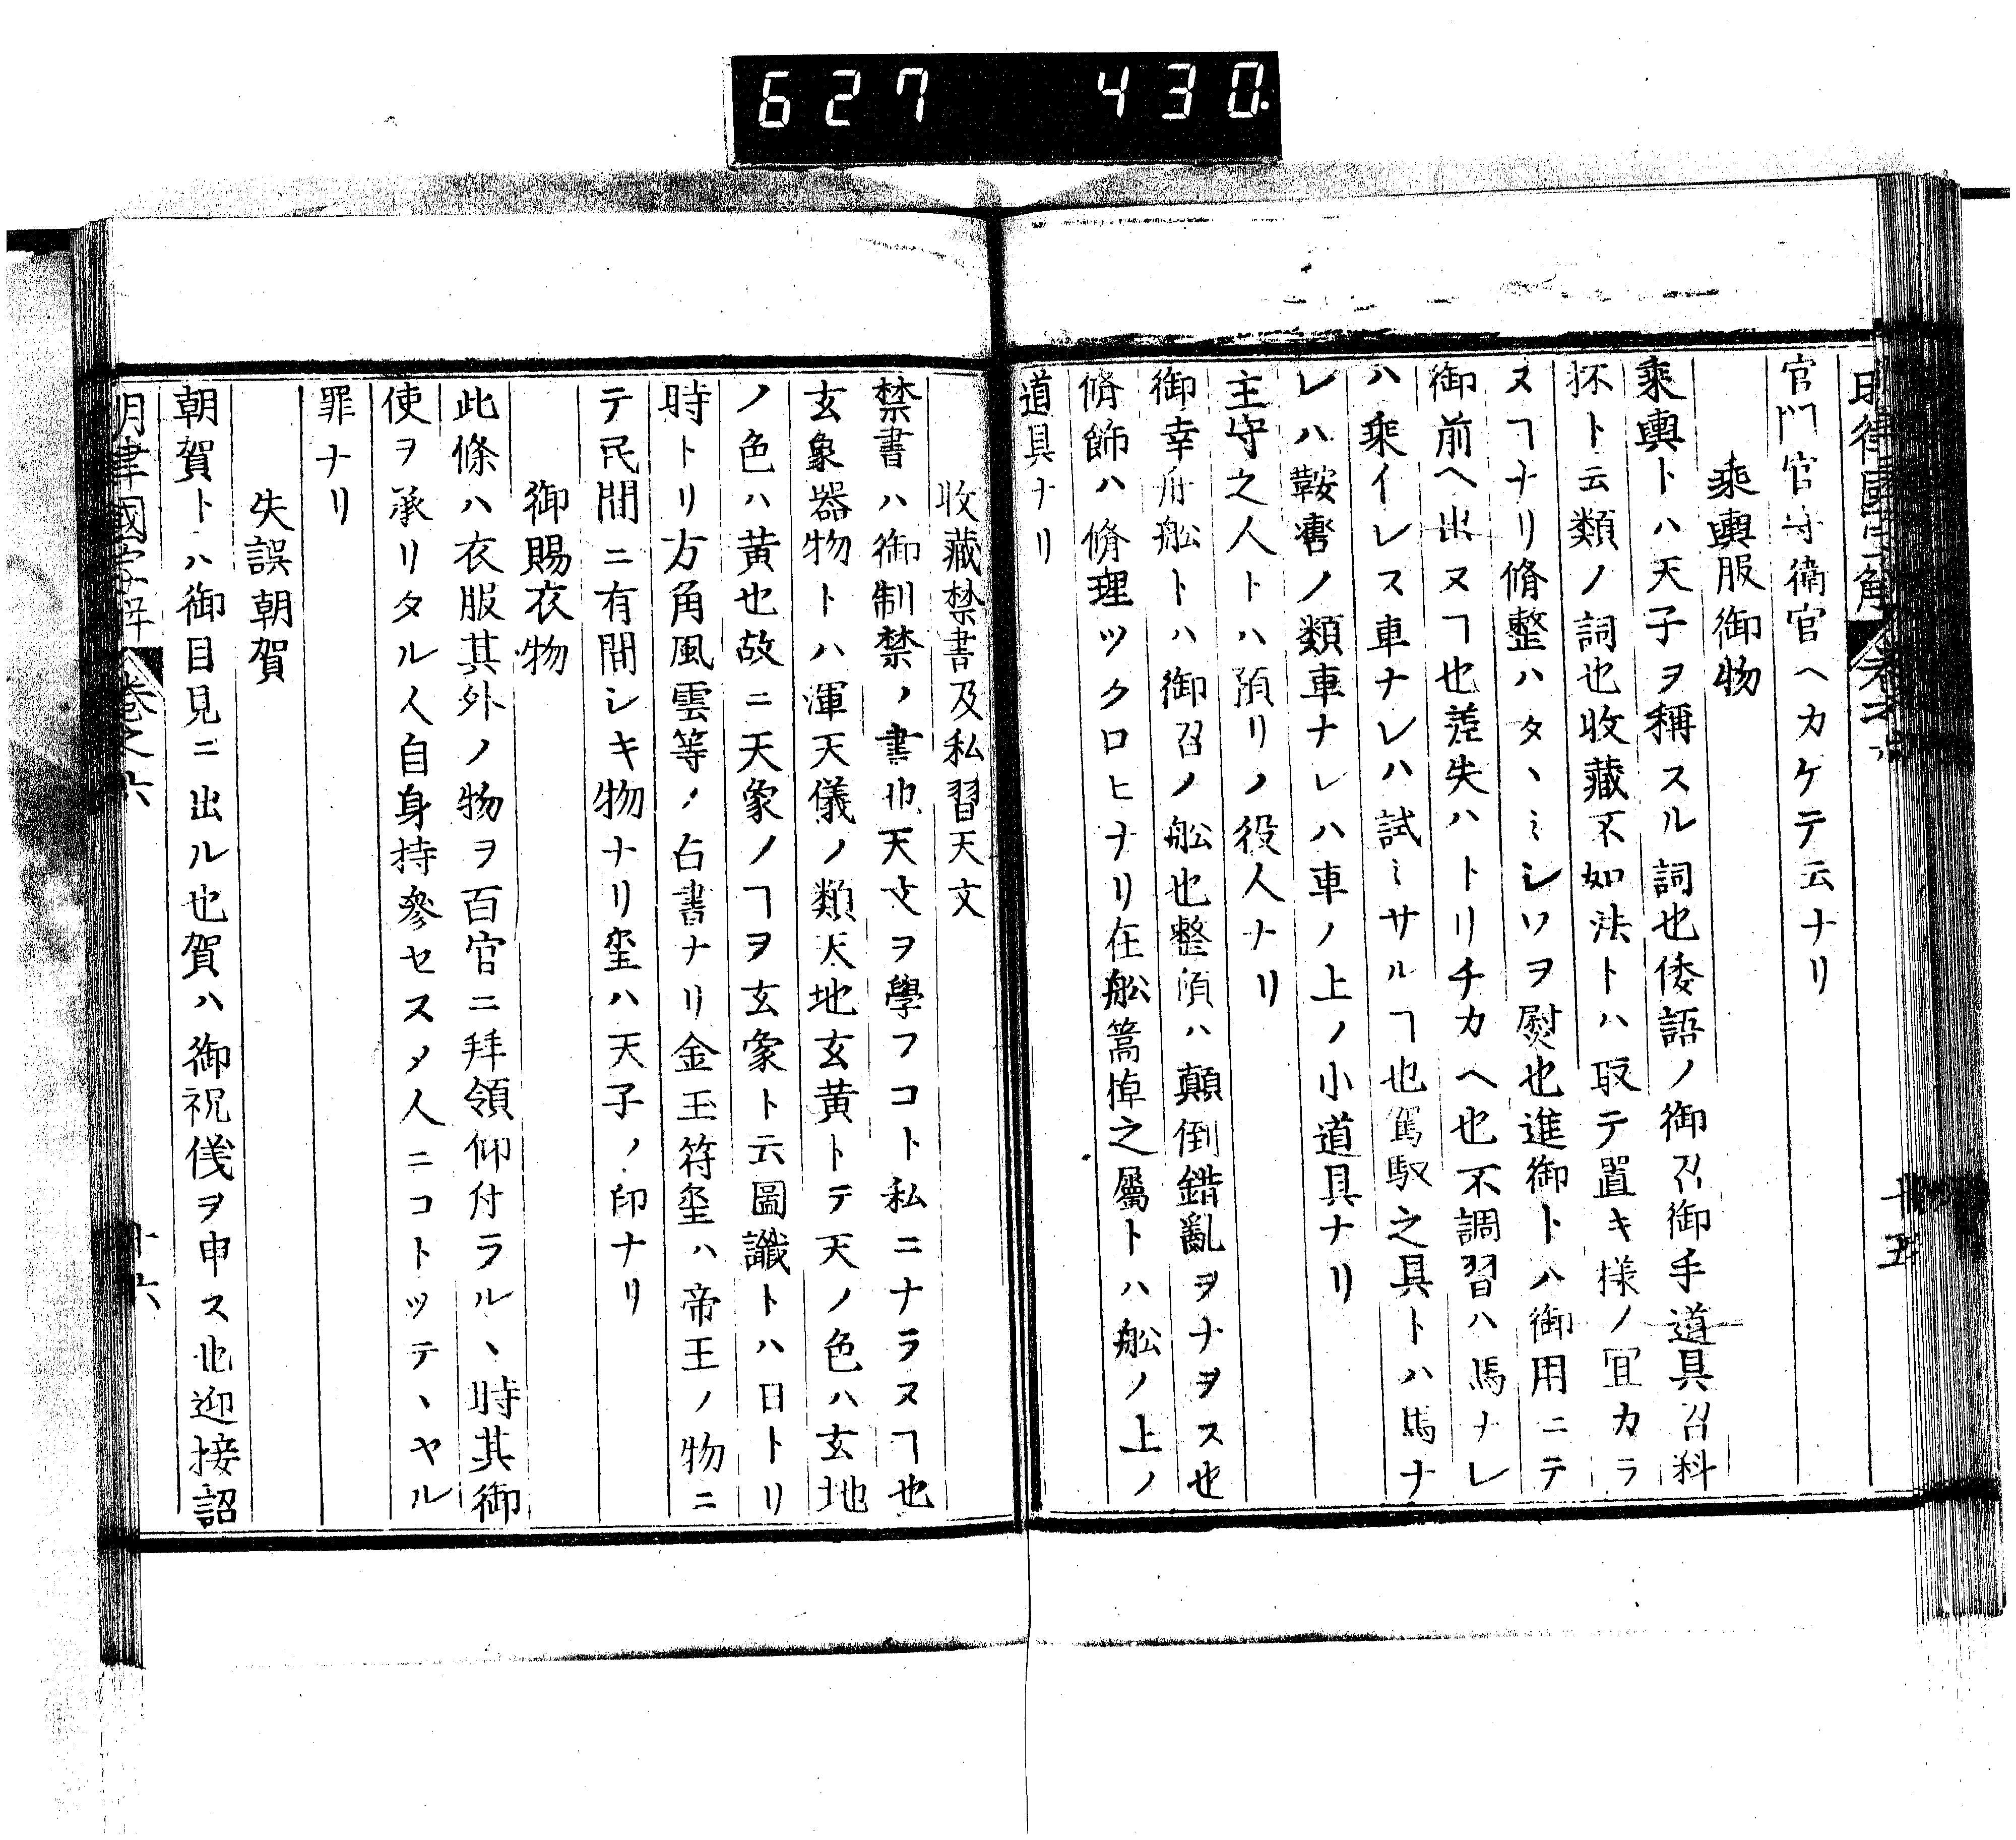 627 430
明律國字解 卷之六 十五
官門官守衛官ヘカケテ云ナリ
乘輿服御物
乘輿トハ天子ヲ稱スル詞也倭語ノ御召御手道具召料
抔ト云類ノ詞也收藏不如法トハ取テ置キ樣ノ冝カラ
ヌヿナリ脩整ハタヽミシワヲ熨也進御トハ御用ニテ
御前ヘ出ヌヿ也差失ハトリチカヘ也不調習ハ馬ナレ
ハ乘イレス車ナレハ試ミサルヿ也駕馭之具トハ馬ナ
レハ鞍轡ノ類車ナレハ車ノ上ノ小道具ナリ
主守之人トハ預リノ役人ナリ
御幸舟舩トハ御召ノ舩也整頓ハ顛倒錯亂ヲナヲス也
脩飾ハ脩理ツクロヒナリ在舩篙棹之屬トハ舩ノ上ノ
道具ナリ
收藏禁書及私習天文
禁書ハ御制禁ノ書也天文ヲ學フコト私ニナラヌヿ也
玄象器物トハ渾天儀ノ類天地玄黄トテ天ノ色ハ玄地
ノ色ハ黄也故ニ天象ノヿヲ玄象ト云圖讖トハ日トリ
時トリ方角風雲等ノ占書ナリ金玉符璽ハ帝王ノ物ニ
テ民間ニ有間シキ物ナリ璽ハ天子ノ印ナリ
御賜衣物
此條ハ衣服其外ノ物ヲ百官ニ拜領仰付ラルヽ時其御
使ヲ承リタル人自身持參セスメ人ニコトツテヽヤル
罪ナリ
失誤朝賀
朝賀トハ御目見ニ出ル也賀ハ御祝儀ヲ申ス也迎接詔
明律國字解 卷之六 十六